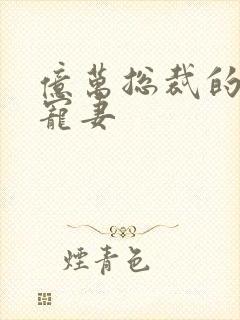 億萬总裁的
寵妻
煙青色